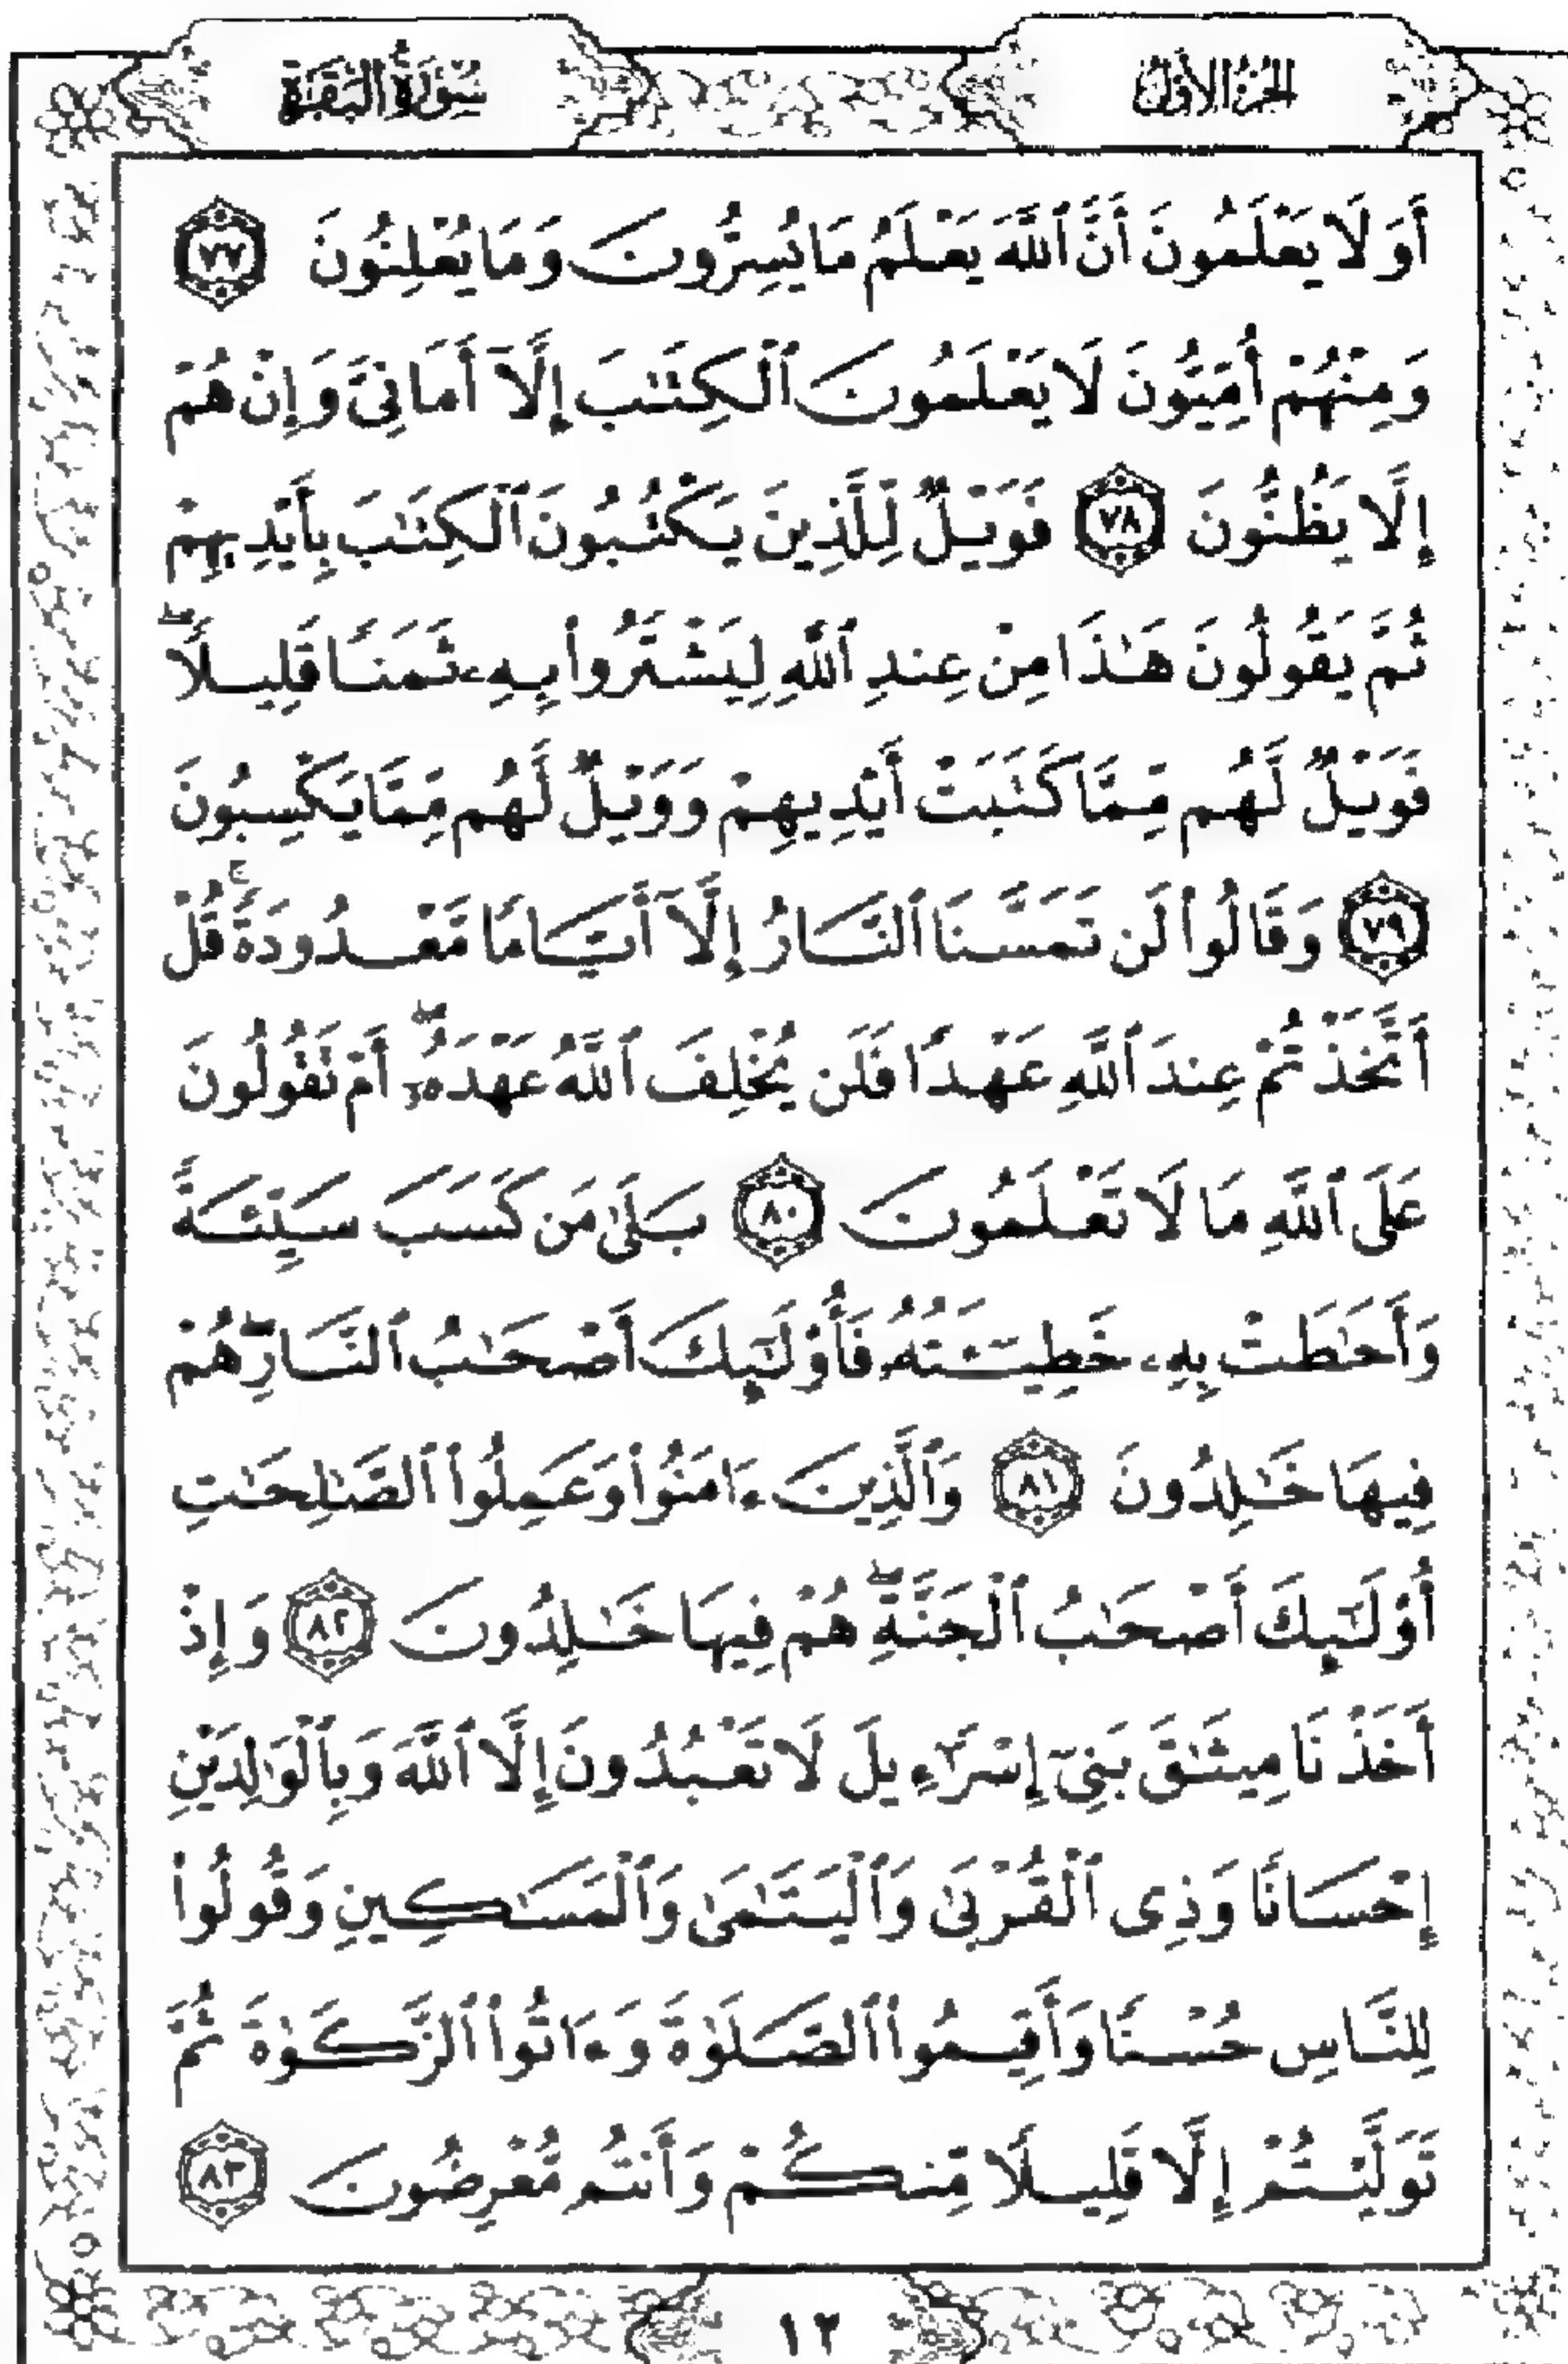 الجزء الأول
سورة البقرة
أَوَلَا يَعْلَمُونَ أَنَّ ٱللَّهَ يَعْلَمُ مَا يُسِرُّونَ وَمَا يُعْلِنُونَ ٧٧
وَمِنْهُمْ أُمِّيُّونَ لَا يَعْلَمُونَ ٱلْكِتَـٰبَ إِلَّآ أَمَانِىَّ وَإِنْ هُمْ
إِلَّا يَظُنُّونَ ٧٨ فَوَيْلٌ لِّلَّذِينَ يَكْتُبُونَ ٱلْكِتَـٰبَ بِأَيْدِيهِمْ
ثُمَّ يَقُولُونَ هَـٰذَا مِنْ عِندِ ٱللَّهِ لِيَشْتَرُوا۟ بِهِۦ ثَمَنًا قَلِيلًا ۖ
فَوَيْلٌ لَّهُم مِّمَّا كَتَبَتْ أَيْدِيهِمْ وَوَيْلٌ لَّهُم مِّمَّا يَكْسِبُونَ
٧٩ وَقَالُوا۟ لَن تَمَسَّنَا ٱلنَّارُ إِلَّآ أَيَّامًا مَّعْدُودَةً ۚ قُلْ
أَتَّخَذْتُمْ عِندَ ٱللَّهِ عَهْدًا فَلَن يُخْلِفَ ٱللَّهُ عَهْدَهُۥٓ ۖ أَمْ تَقُولُونَ
عَلَى ٱللَّهِ مَا لَا تَعْلَمُونَ ٨٠ بَلَىٰ مَن كَسَبَ سَيِّئَةً
وَأَحَـٰطَتْ بِهِۦ خَطِيٓـَٔتُهُۥ فَأُو۟لَـٰٓئِكَ أَصْحَـٰبُ ٱلنَّارِ ۖ هُمْ
فِيهَا خَـٰلِدُونَ ٨١ وَٱلَّذِينَ ءَامَنُوا۟ وَعَمِلُوا۟ ٱلصَّـٰلِحَـٰتِ
أُو۟لَـٰٓئِكَ أَصْحَـٰبُ ٱلْجَنَّةِ ۖ هُمْ فِيهَا خَـٰلِدُونَ ٨٢ وَإِذْ
أَخَذْنَا مِيثَـٰقَ بَنِىٓ إِسْرَٰٓءِيلَ لَا تَعْبُدُونَ إِلَّا ٱللَّهَ وَبِٱلْوَٰلِدَيْنِ
إِحْسَانًا وَذِى ٱلْقُرْبَىٰ وَٱلْيَتَـٰمَىٰ وَٱلْمَسَـٰكِينِ وَقُولُوا۟
لِلنَّاسِ حُسْنًا وَأَقِيمُوا۟ ٱلصَّلَوٰةَ وَءَاتُوا۟ ٱلزَّكَوٰةَ ثُمَّ
تَوَلَّيْتُمْ إِلَّا قَلِيلًا مِّنكُمْ وَأَنتُم مُّعْرِضُونَ ٨٣
١٢